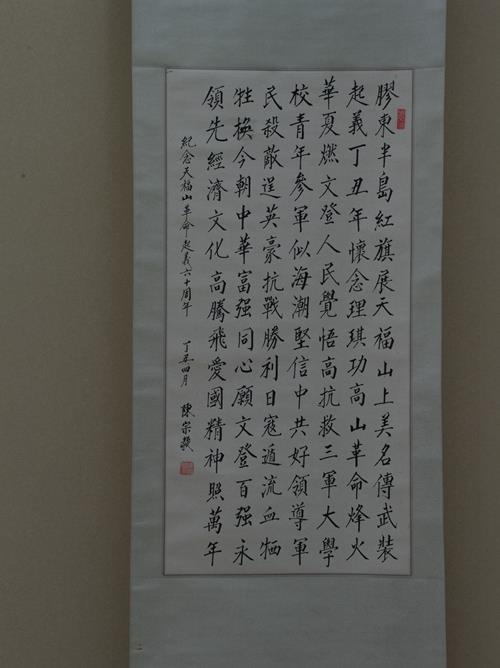 膠東半島紅旗展天福山上美名傳武裝
起義丁丑年懷念理琪功高山革命烽火
華夏燃文登人民覺悟高抗救三軍大學
校青年參軍似海潮堅信中共好領導軍
民殺敵逞英豪抗戰勝利日寇遁流血牺
牲換今朝中華富强同心願文登百强永
領先經濟文化高騰飛愛國精神照萬年
紀念天福山革命起義六十周年 丁丑四月 陳宗